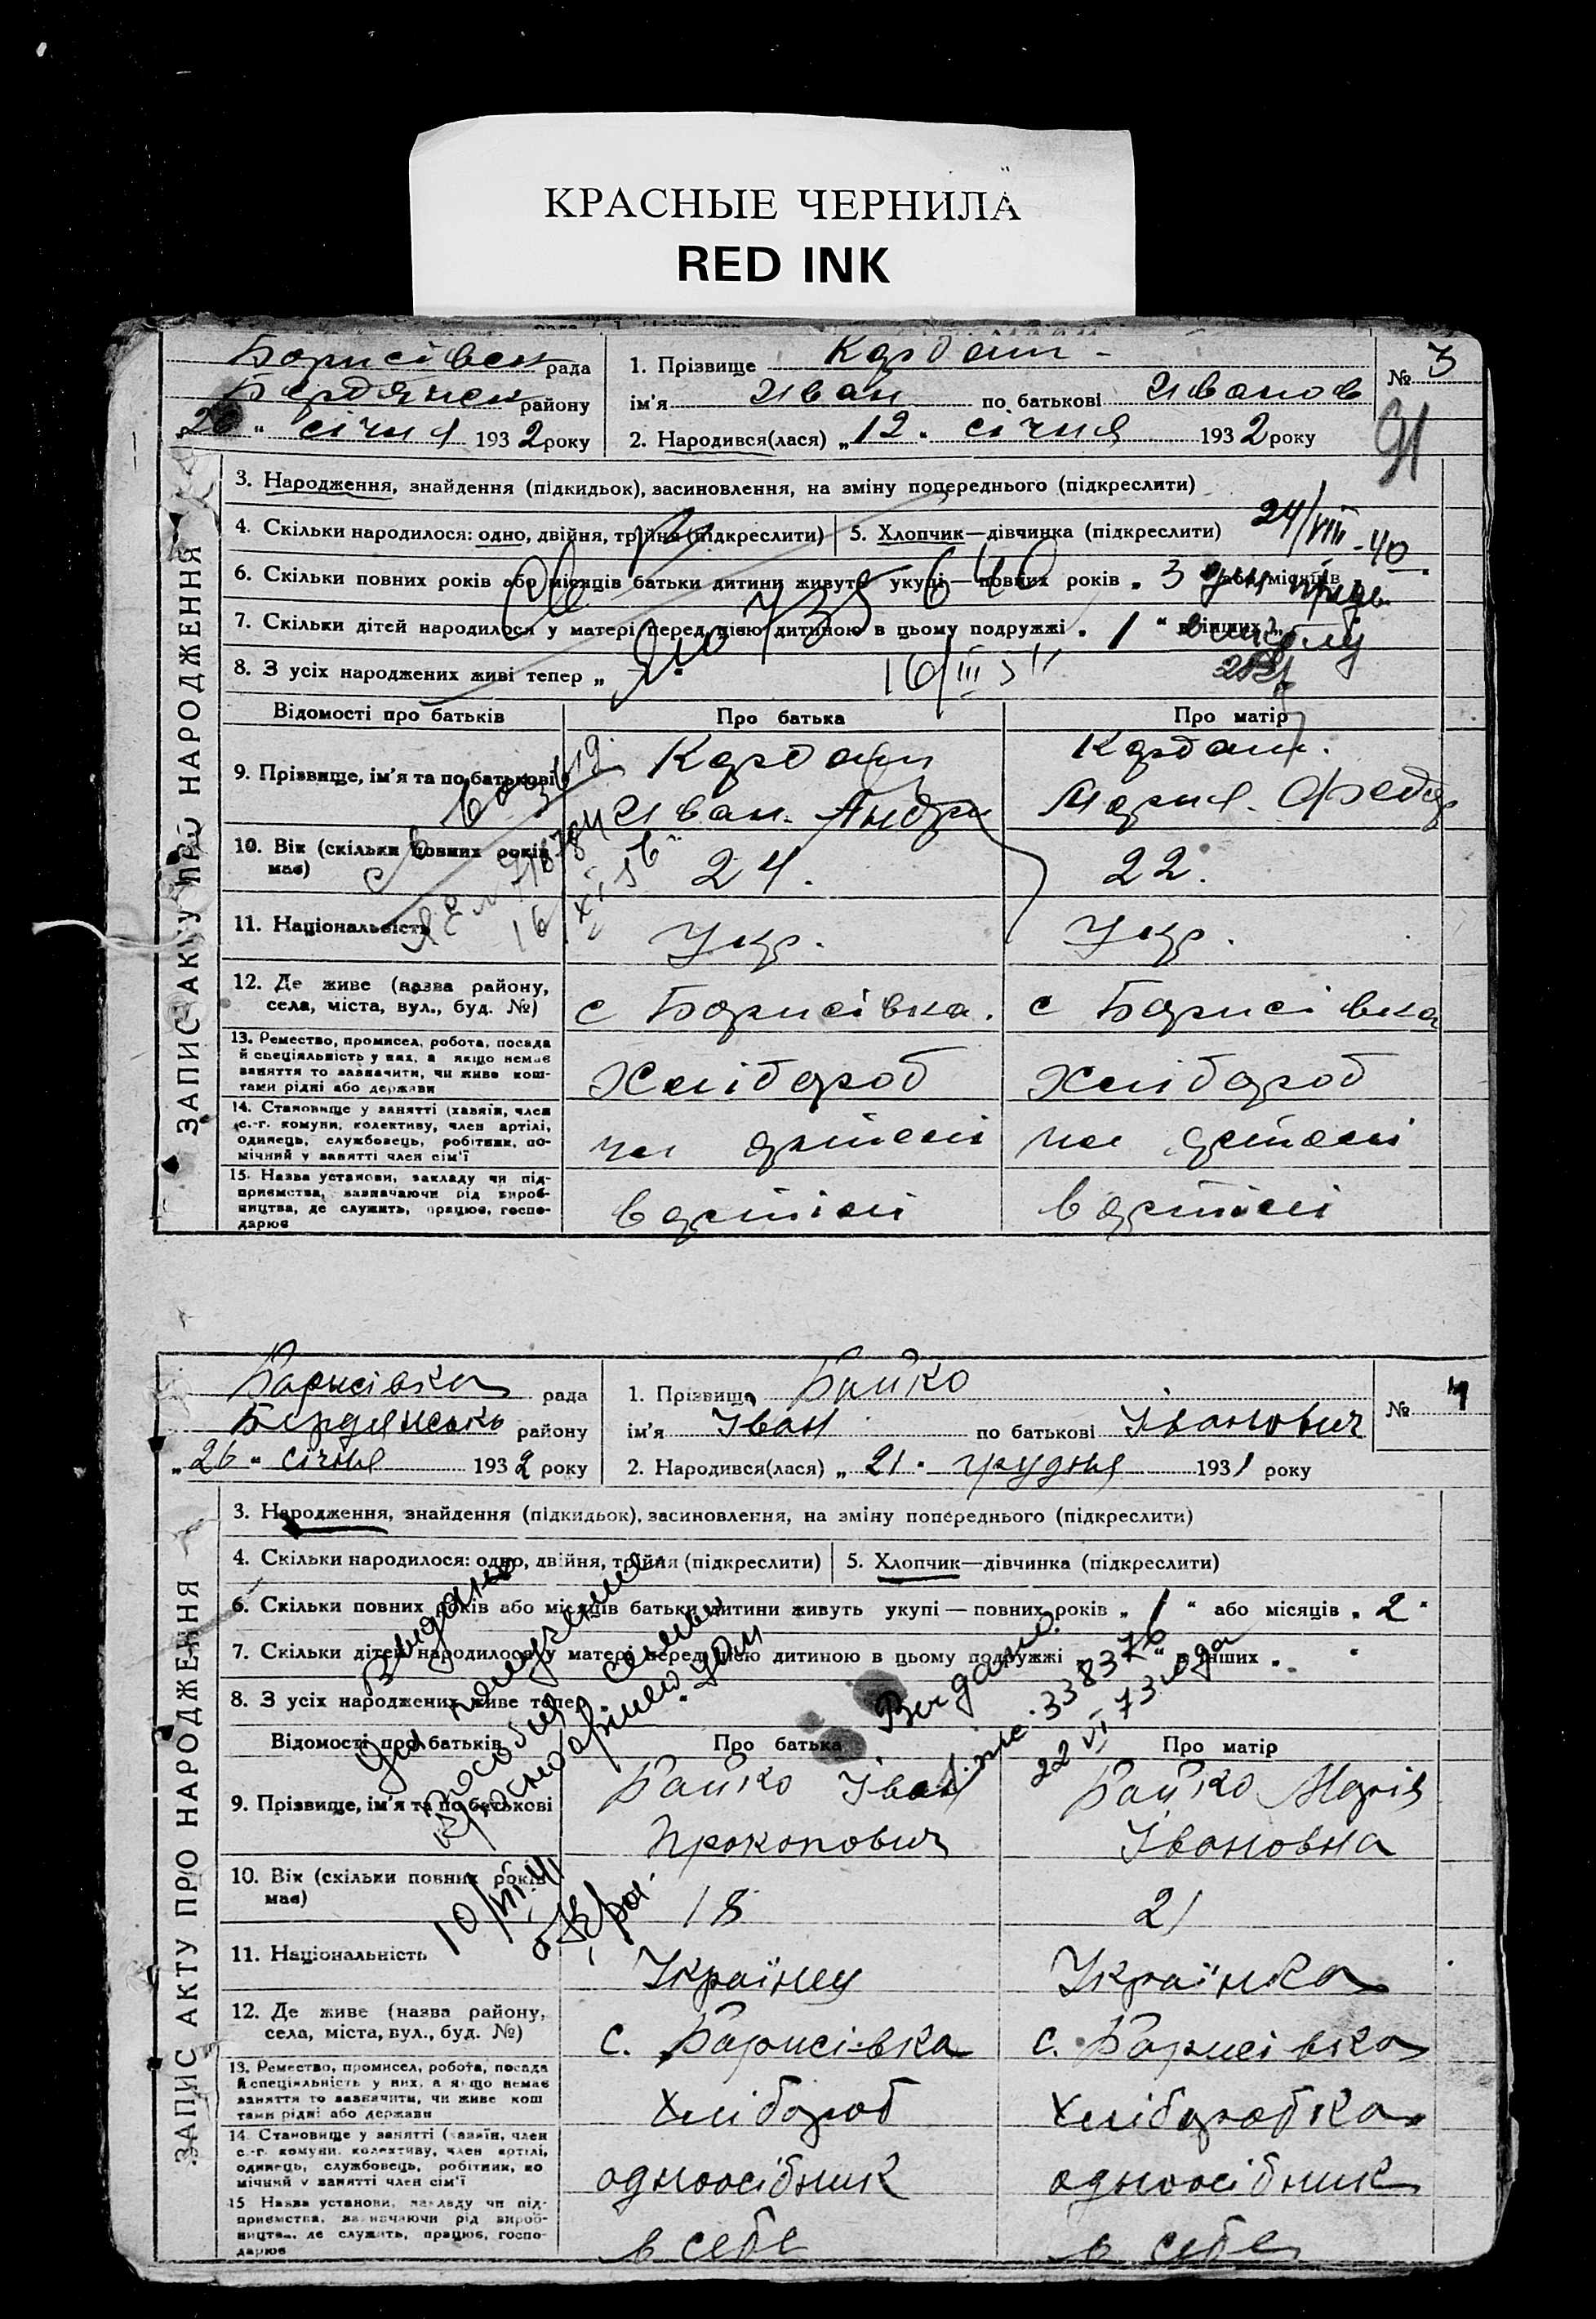 КРАСНЫЕ ЧЕРНИЛА
RED INK
Борисівськ рада
Бердянськ району
„26“ січня 1932 року
1. Прізвище Кардаш
ім'я Иван по батькові Иванов
2. Народився(лася) „12“ січня 1932 року
№ 3
91
ЗАПИС АКТУ ПРО НАРОДЖЕННЯ
3. Народження, знайдення (підкидьок), засиновлення, на зміну попереднього (підкреслити)
4. Скільки народилося: одно, двійня, трійня (підкреслити)
5. Хлопчик—дівчинка (підкреслити)
24/VIII-40
6. Скільки повних років або місяців батьки дитини живуть укупі—повних років „3 або місяців
7. Скільки дітей народилося у матері перед цією дитиною в цьому подружжі „1“ в інших
8. З усіх народжених живі тепер „
16/III
Відомості про батьків
Про батька
Про матір
9. Прізвище, ім'я та по батькові
Кардаш
Иван. Андри
Кардаш.
Мария. Федор
10. Вік (скільки повних років має)
24.
22.
11. Національність
Укр.
Укр.
12. Де живе (назва району, села, міста, вул., буд. №)
с Борисівка.
с Борисівка
13. Ремество, промисел, робота, посада й спеціяльність у них, а якщо немає заняття то зазначити, чи живе коштами рідні або держави
Хлібороб
хлібороб
14. Становище у занятті (хазяїн, член с.-г. комуни, колективу, член артілі, одинець, службовець, робітник, помічний у занятті член сім'ї
чл артілі
чл артілі
15. Назва установи, закладу чи підприємства, зазначаючи рід виробництва, де служить, працює, господарює
в артілі
в артілі
Борисівка рада
Бердянсько району
„26“ січня 1932 року
1. Прізвище Бойко
ім'я Іван по батькові Іванович
2. Народився(лася) „21“ грудня 1931 року
№ 4
ЗАПИС АКТУ ПРО НАРОДЖЕННЯ
3. Народження, знайдення (підкидьок), засиновлення, на зміну попереднього (підкреслити)
4. Скільки народилося: одно, двійня, трійня (підкреслити)
5. Хлопчик—дівчинка (підкреслити)
6. Скільки повних років або місяців батьки дитини живуть укупі—повних років „1“ або місяців „2“
7. Скільки дітей народилося у матері перед цією дитиною в цьому подружжі „ “ в інших „
8. З усіх народжених живе тепер
Видано
для получения
пособия семьи
красноармейцам
10/VII-41
Видано
338376
22 VI 73 года
Відомості про батьків
Про батька
Про матір
9. Прізвище, ім'я та по батькові
Бойко Іван
Прокопович
Бойко Марія
Івановна
10. Вік (скільки повних років має)
18
21
11. Національність
Українец
Українка
12. Де живе (назва району, села, міста, вул., буд. №)
с. Борисівка
с. Борисівка
13. Ремество, промисел, робота, посада й спеціяльність у них, а якщо немає заняття то зазначити, чи живе коштами рідні або держави
хлібороб
хліборобка
14. Становище у занятті (хазяїн, член с.-г. комуни, колективу, член артілі, одинець, службовець, робітник, помічний у занятті член сім'ї
одноосібник
одноосібник
15 Назва установи, закладу чи підприємства, зазначаючи рід виробництва, де служить, працює, господарює
в себе
в себе